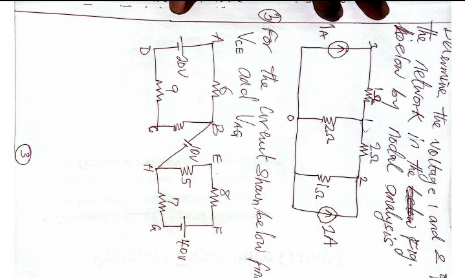 Determine the voltage 1 and 2
the network in the fig.
below by nodal analysis
1 1Ω 1 2Ω 2
1A 2Ω 1Ω 2A
0
b) For the Circuit Shown below find
VCE and VAG
A 6 B E 8 F
20V 10V 5 40V
D 9 C H 7 G
3